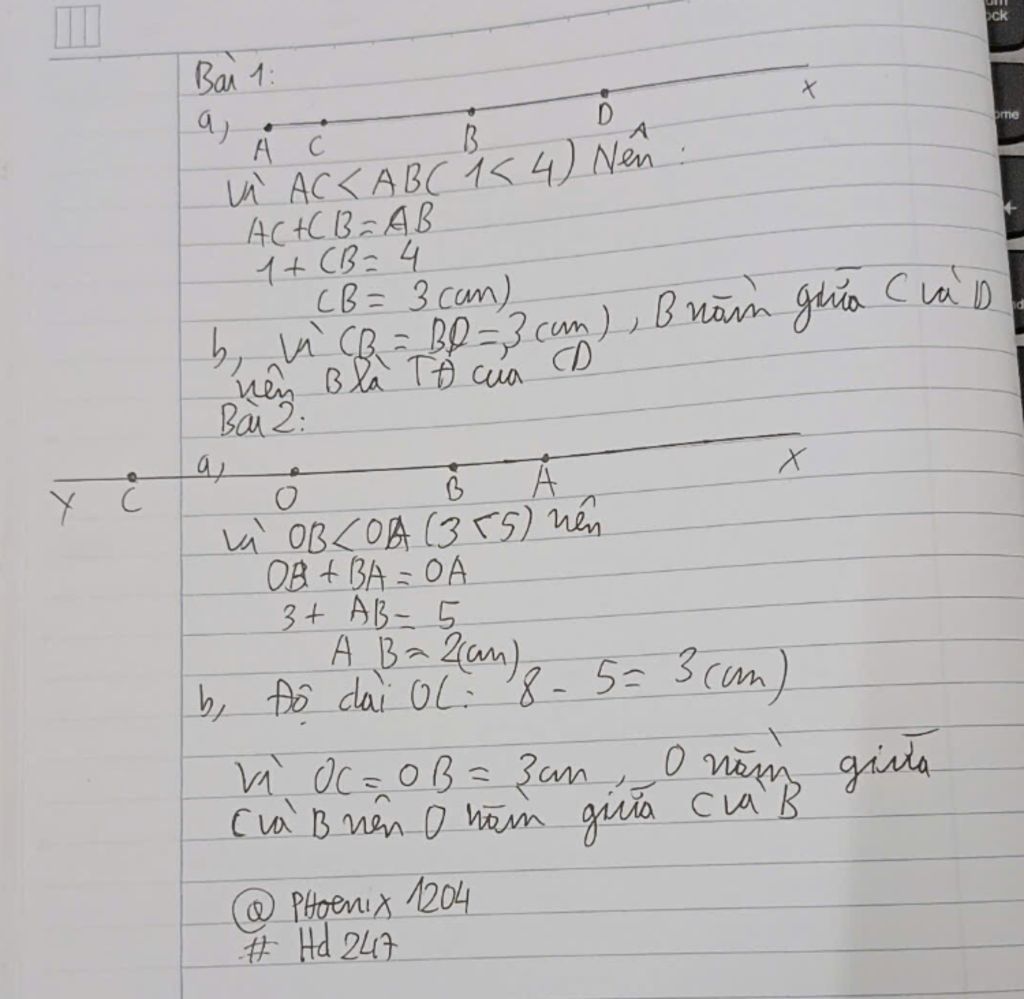 Bài 1:
a,
A C B D x
Vì AC < AB ( 1 < 4 ) Nên :
AC + CB = AB
1 + CB = 4
CB = 3 (cm)
b, Vì CB = BD = 3 (cm) , B nằm giữa C và D
nên B là TĐ của CD
Bài 2:
a,
y C O B A x
Vì OB < OA ( 3 < 5 ) nên
OB + BA = OA
3 + AB = 5
A B = 2 (cm)
b, Độ dài OC : 8 - 5 = 3 (cm)
Vì OC = OB = 3cm , O nằm giữa
C và B nên O nằm giữa C và B
@ PHoenix 1204
# Hd 247